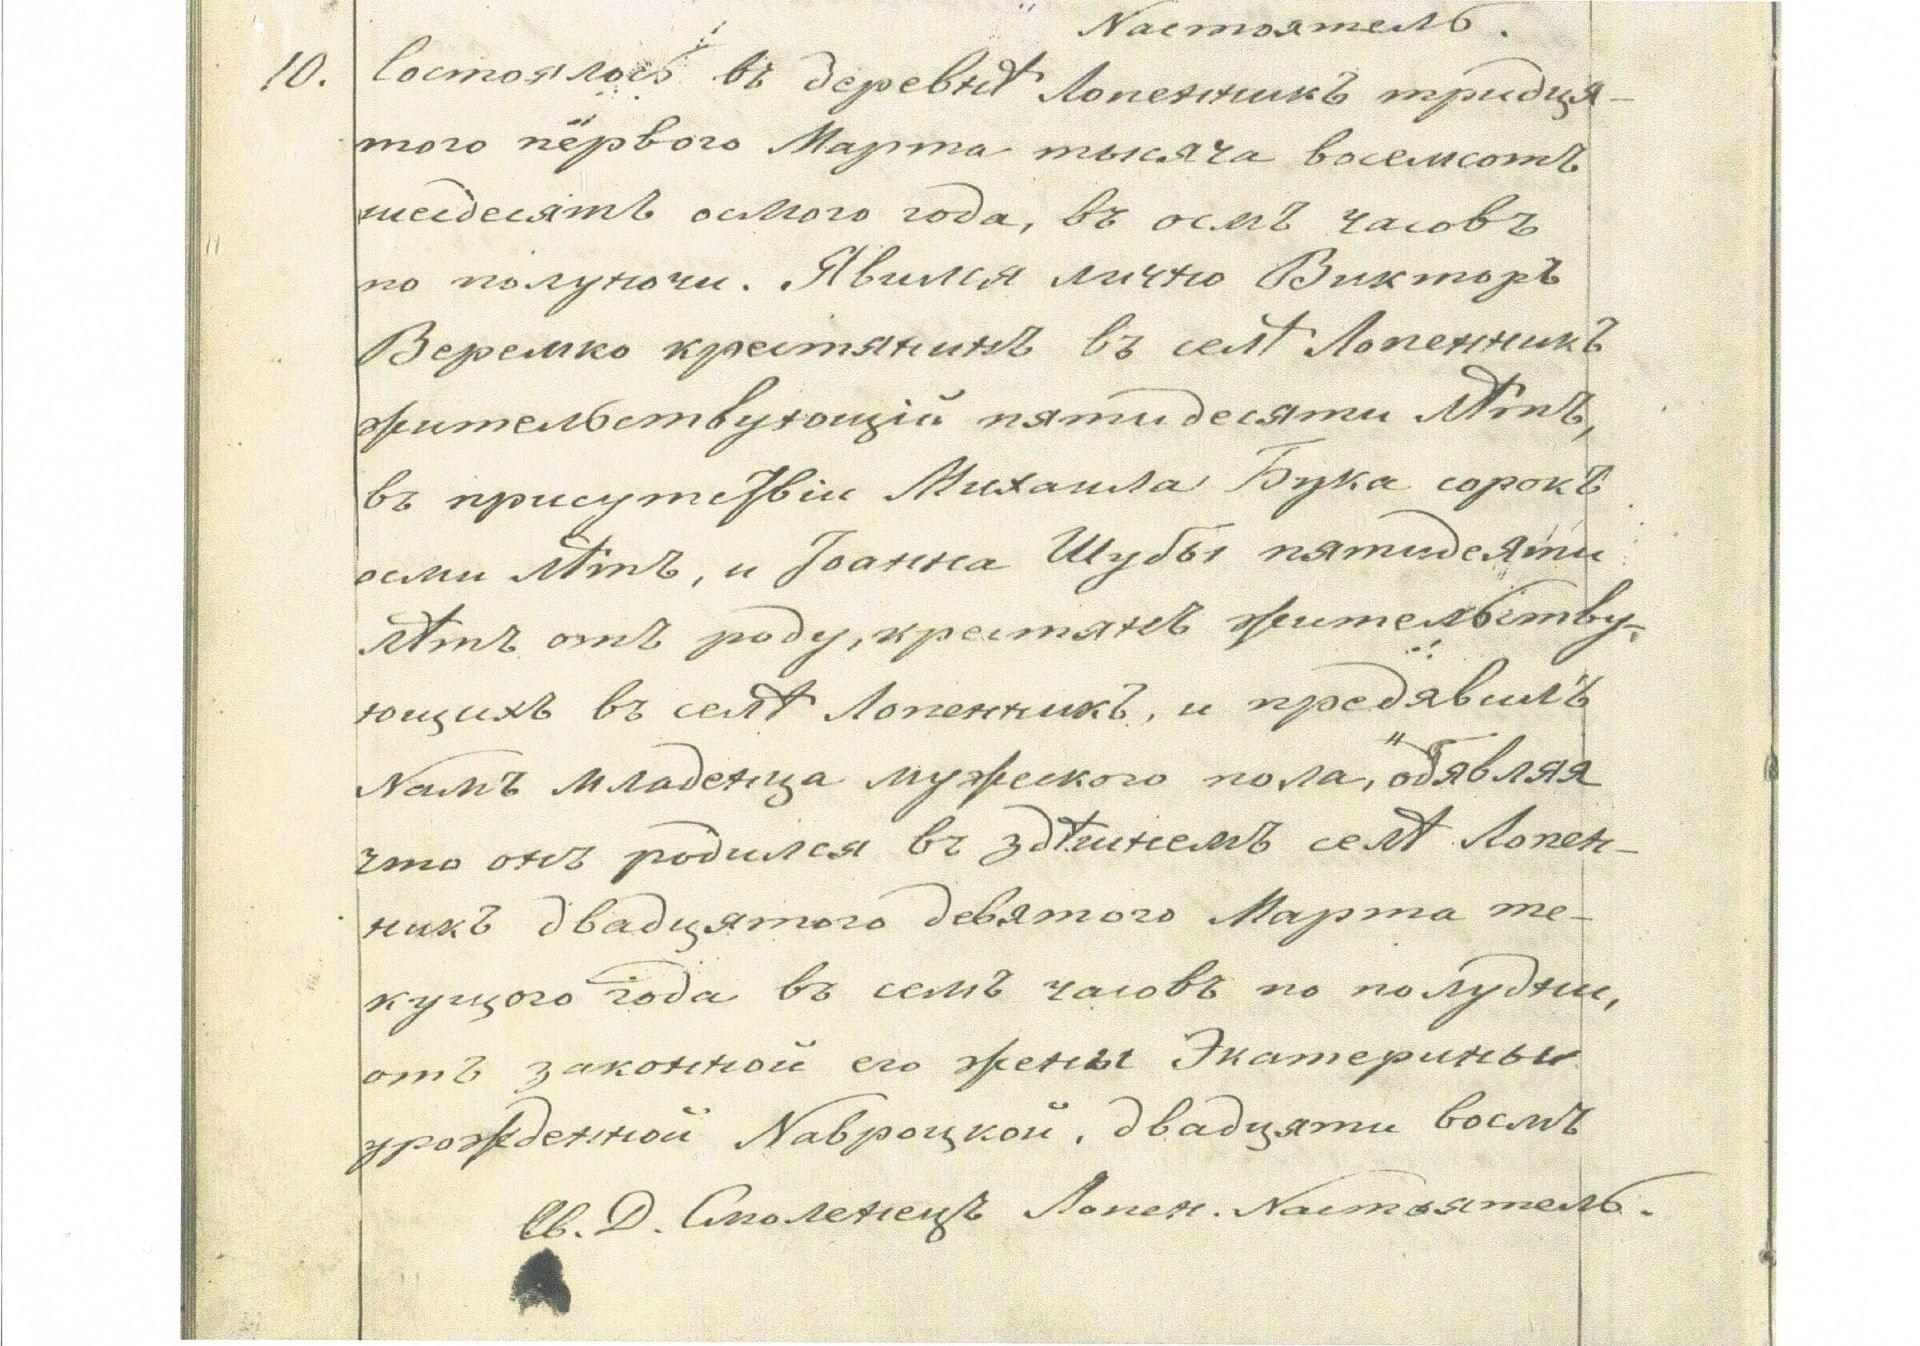 Настоятель.
10. Состоялось въ деревнѣ Лопенникъ тридця-
того перваго Марта тысяча восемсотъ
шесдесятъ осмого года, въ осмъ часовъ
по полуночи. Явился лично Викторъ
Веремко крестянинъ въ селѣ Лопенникъ
жительствующій пятидесяти лѣтъ,
въ присутствіи Михаила Бука сорокъ
осми лѣтъ, и Іоанна Шубы пятидесяти
лѣтъ отъ роду, крестянъ жительству-
ющихъ въ селѣ Лопенникъ, и предявилъ
Намъ младенца мужеского пола, обявляя
что онъ родился въ здѣшнемъ селѣ Лопен-
никъ двадцятого девятого Марта те-
кущого года въ семъ часовъ по полудни,
отъ законной его жены Экатерины
урожденной Навроцкой, двадцяти восмъ
Св. Д. Смоленецъ Лопен. Настоятель.